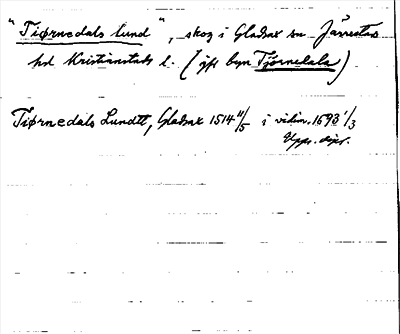 "Tiørnedals lund", skog i Gladsax sn Järrestas
hd Kristianstads l. (jfr byn Tjörnedala)
Tiørnedals Lundtt, Gladsax 1514 11/5 i vidim. 1693 1/3
Upps. dipl.